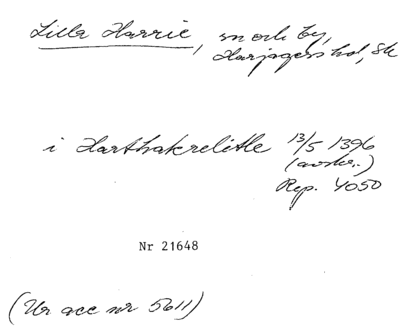 Lilla Harrie, sn och by,
Harjagers hd, Sk
i Harthakrelitle 13/5 1396
(avskr.)
Rep. 4050
Nr 21648
(Ur acc nr 5611)